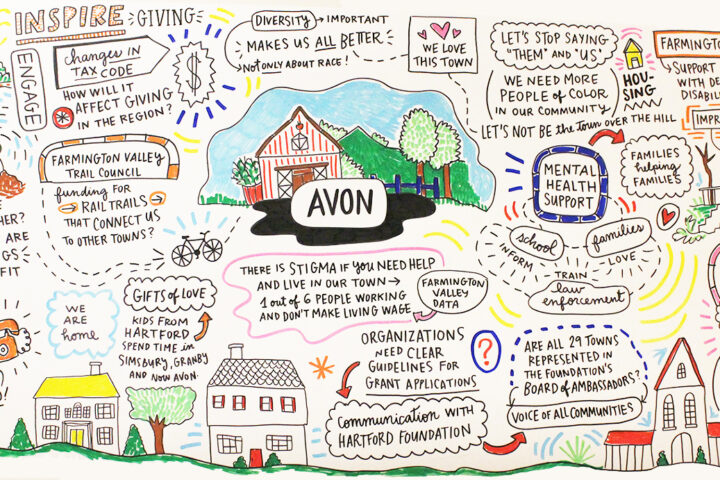 INSPIRE GIVING
ENGAGE
changes IN
TAX CODE
HOW WILL IT
AFFECT GIVING
IN THE REGION?
$
FARMINGTON VALLEY
TRAIL COUNCIL
funding FOR
RAIL TRAILS
THAT CONNECT US
TO OTHER TOWNS?
HER?
ARE
GS
FIT
WE
ARE
home
GIFTS of LOVE
KIDS FROM
HARTFORD
SPEND TIME in
SIMSBURY, GRANBY
AND NOW AVON.
DIVERSITY → IMPORTANT
MAKES US ALL BETTER
NOT ONLY ABOUT RACE!
WE LOVE
THIS TOWN
AVON
THERE IS STIGMA IF YOU NEED HELP
AND LIVE IN OUR TOWN →
1 OUT of 6 PEOPLE WORKING
AND DON'T MAKE LIVING WAGE
FARMINGTON
VALLEY
DATA
ORGANIZATIONS
NEED CLEAR
GUIDELINES FOR
GRANT APPLICATIONS
?
Communication WITH
HARTFORD FOUNDATION
LET'S STOP SAYING
"THEM" AND "US"
WE NEED MORE
PEOPLE of COLOR
IN OUR COMMUNITY
LET'S NOT BE the TOWN OVER THE HILL
HOU-
SING
FARMINGTO
SUPPORT
WITH DE
DISABILI
IMPR
MENTAL
HEALTH
SUPPORT
FAMILIES
helping
FAMILIES
school
INFORM
families
LOVE
TRAIN
law
enforcement
ARE ALL 29 TOWNS
REPRESENTED
IN THE FOUNDATION'S
BOARD of AMBASSADORS?
VOICE OF ALL COMMUNITIES